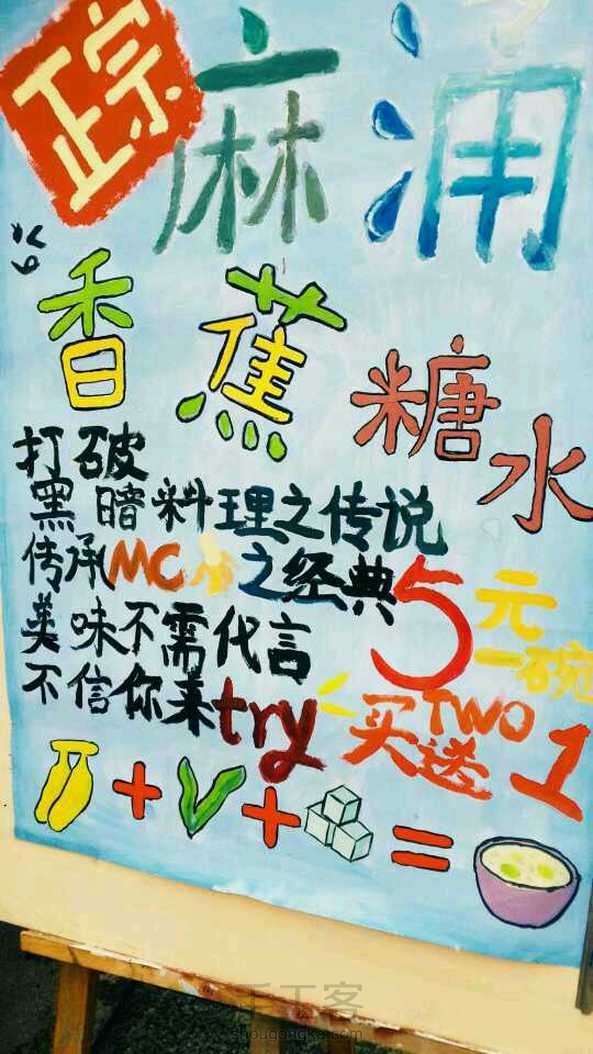 正宗
麻涌
香蕉糖水
打破
黑暗料理之传说
传承MC
之经典
美味不需代言
不信你来try
5元
一碗
买TWO
送1
+ + =
手工客
shougongke.com